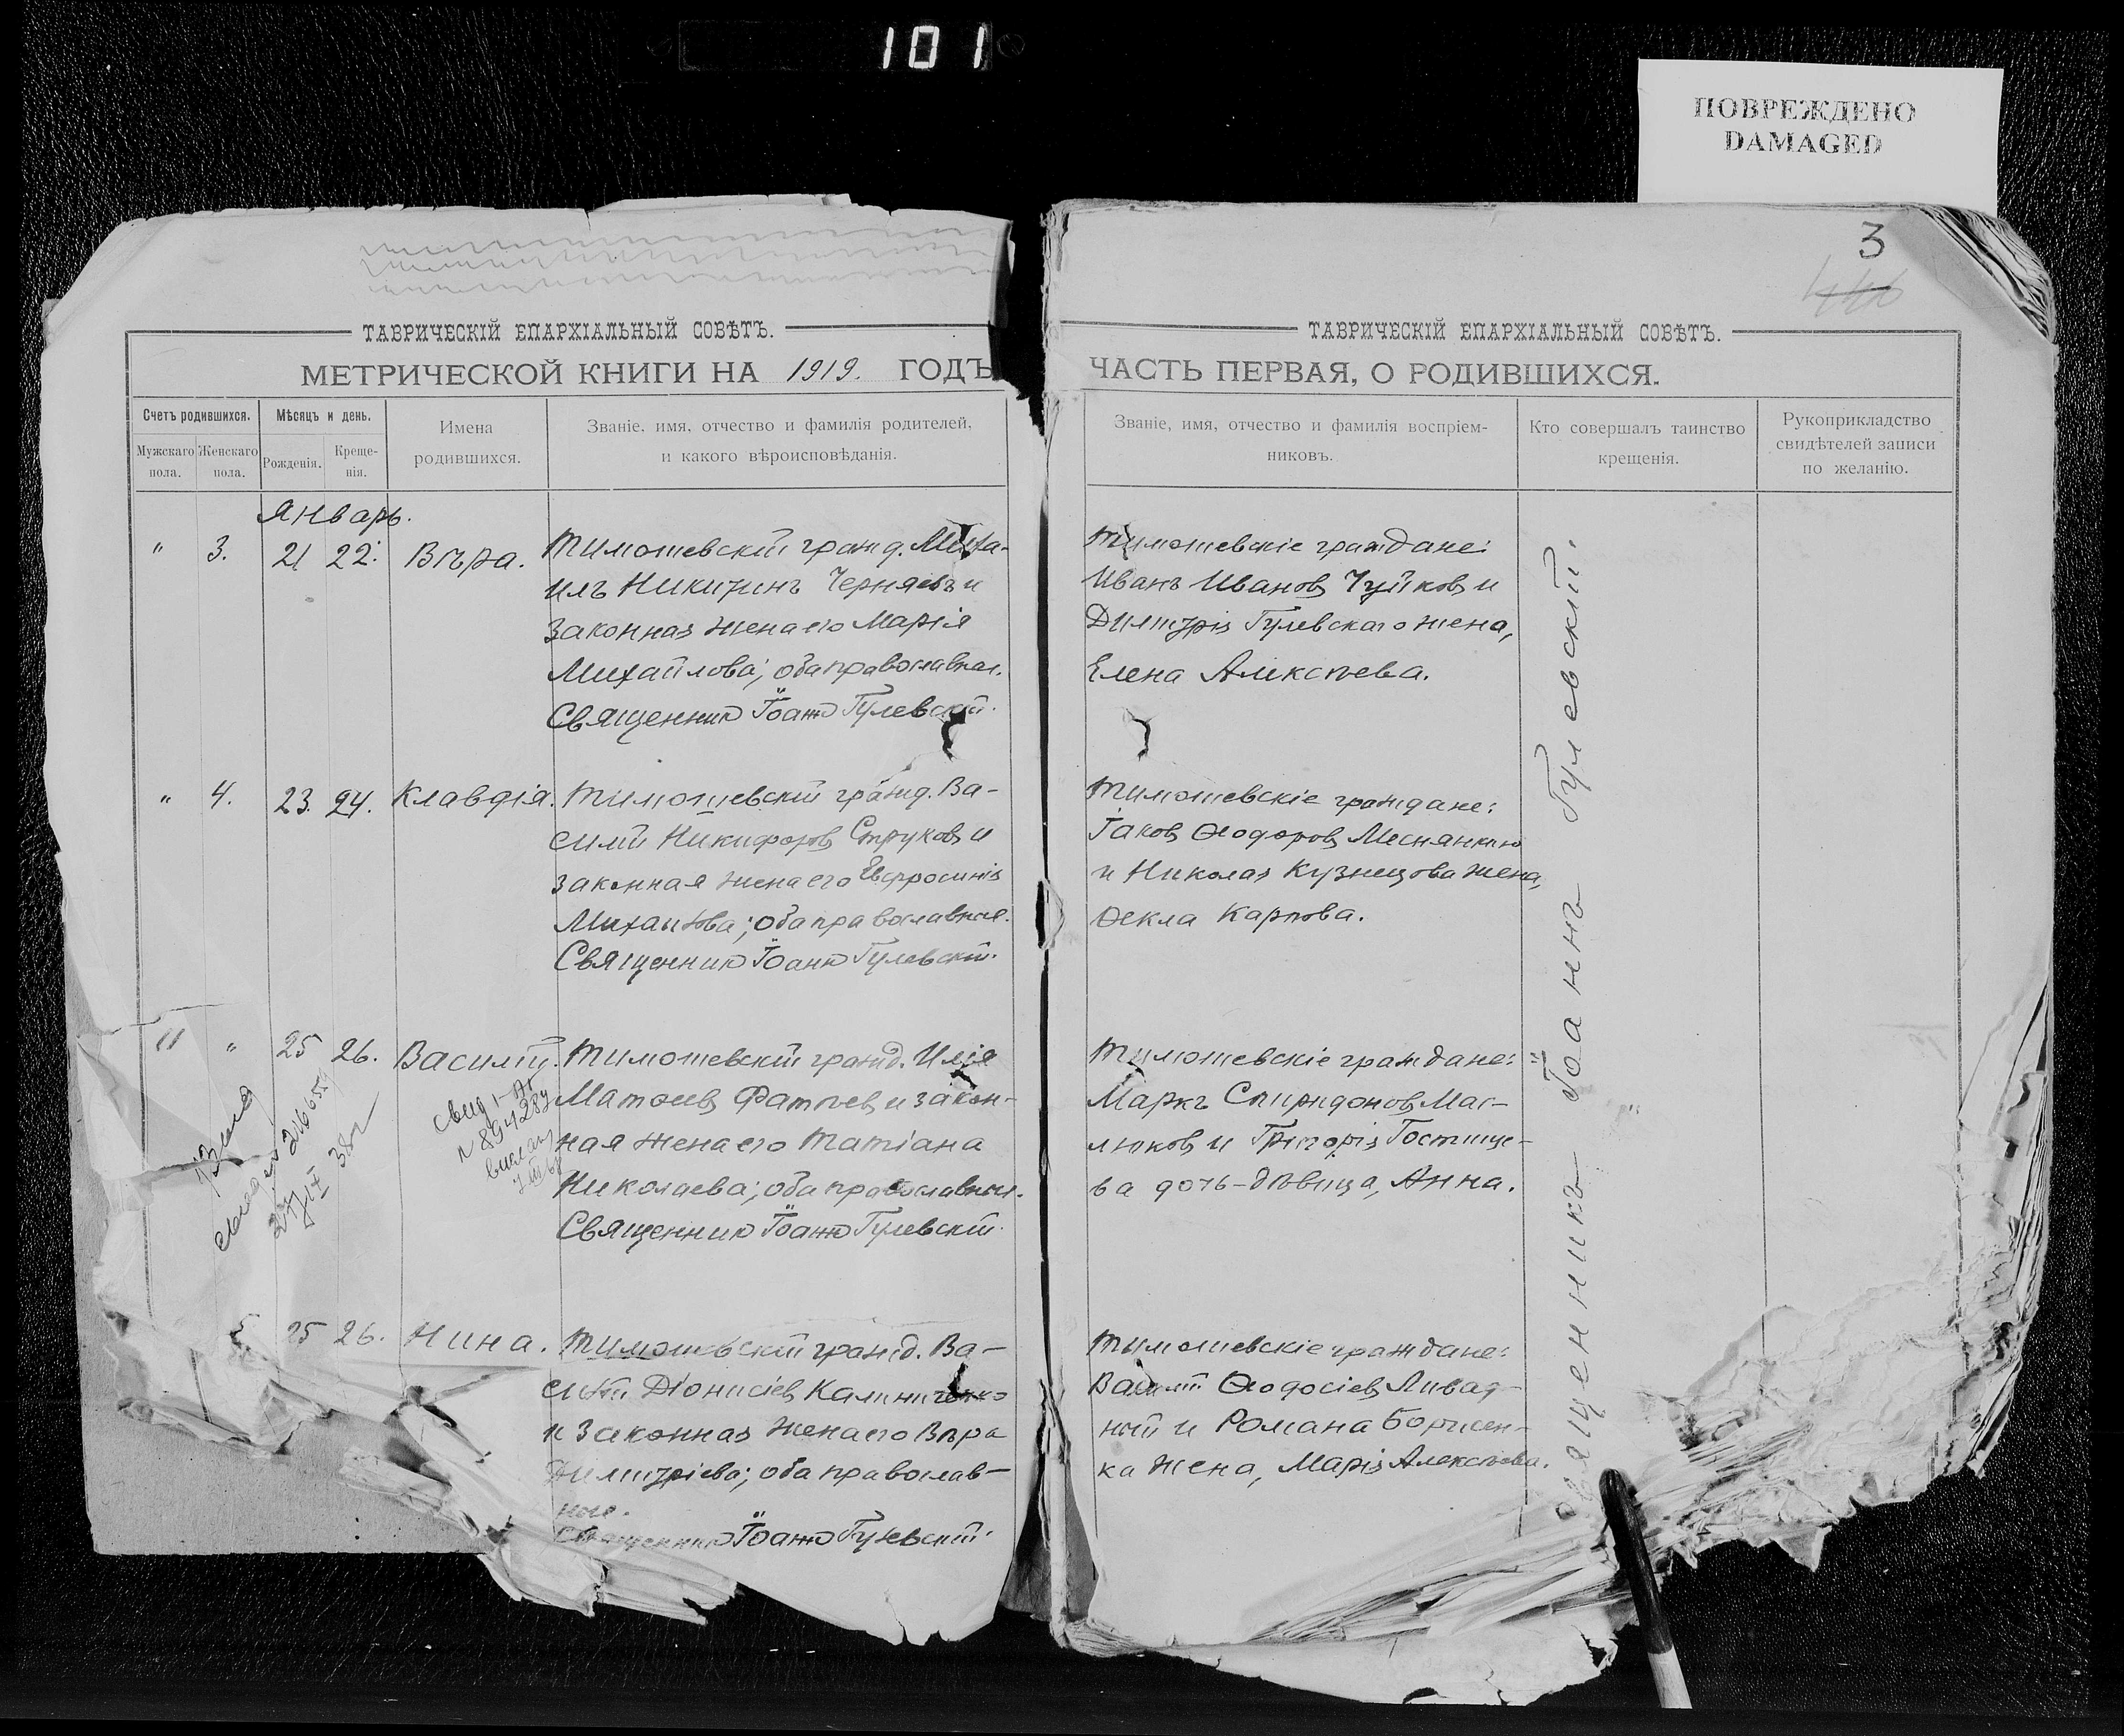 101
ПОВРЕЖДЕНО
DAMAGED
3
ТАВРИЧЕСКІЙ ЕПАРХІАЛЬНЫЙ СОВѢТЪ.
МЕТРИЧЕСКОЙ КНИГИ НА 1919. ГОДЪ
Счетъ родившихся.
Мужскаго пола.
Женскаго пола.
Мѣсяцъ и день.
Рожденія.
Креще-
нія.
Имена
родившихся.
Званіе, имя, отчество и фамилія родителей,
и какого вѣроисповѣданія.
Январь.
" 3. 21 22. Вѣра.
Тимошевскій гражд. Миха-
илъ Никитинъ Черняевъ и
законная жена его Марія
Михайлова; оба православные.
Священникъ Іоаннъ Гулевскій.
" 4. 23. 24. Клавдія.
Тимошевскій гражд. Ва-
силій Никифоровъ Струковъ и
законная жена его Евфросинія
Михайлова; оба православные.
Священникъ Іоаннъ Гулевскій.
" " 25 26. Василій.
Тимошевскій гражд. Илія
Матѳеевъ Фатѣевъ и закон-
ная жена его Татіана
Николаева; оба православные.
Священникъ Іоаннъ Гулевскій.
25 26. Нина.
Тимошевскій гражд. Ва-
силій Діонисіевъ Калиниченко
и законная жена его Вѣра
Димитріева; оба православ-
ные.
Священникъ Іоаннъ Гулевскій.
ТАВРИЧЕСКІЙ ЕПАРХІАЛЬНЫЙ СОВѢТЪ.
ЧАСТЬ ПЕРВАЯ, О РОДИВШИХСЯ.
Званіе, имя, отчество и фамилія воспріем-
никовъ.
Кто совершалъ таинство
крещенія.
Рукоприкладство
свидѣтелей записи
по желанію.
Тимошевскіе граждане:
Иванъ Ивановъ Чуйковъ и
Димитрія Гулевскаго жена,
Елена Алексѣева.
Тимошевскіе граждане:
Іаковъ Ѳеодоровъ Меснянкинъ
и Николая Кузнецова жена,
Ѳекла Карпова.
Тимошевскіе граждане:
Маркъ Спиридоновъ Мас-
люковъ и Григорія Гостище-
ва дочь-дѣвица, Анна.
Тимошевскіе граждане:
Василій Ѳеодосіевъ Ливад-
ный и Романа Борисен-
ка жена, Марія Алексѣева.
Священникъ Іоаннъ Гулевскій.